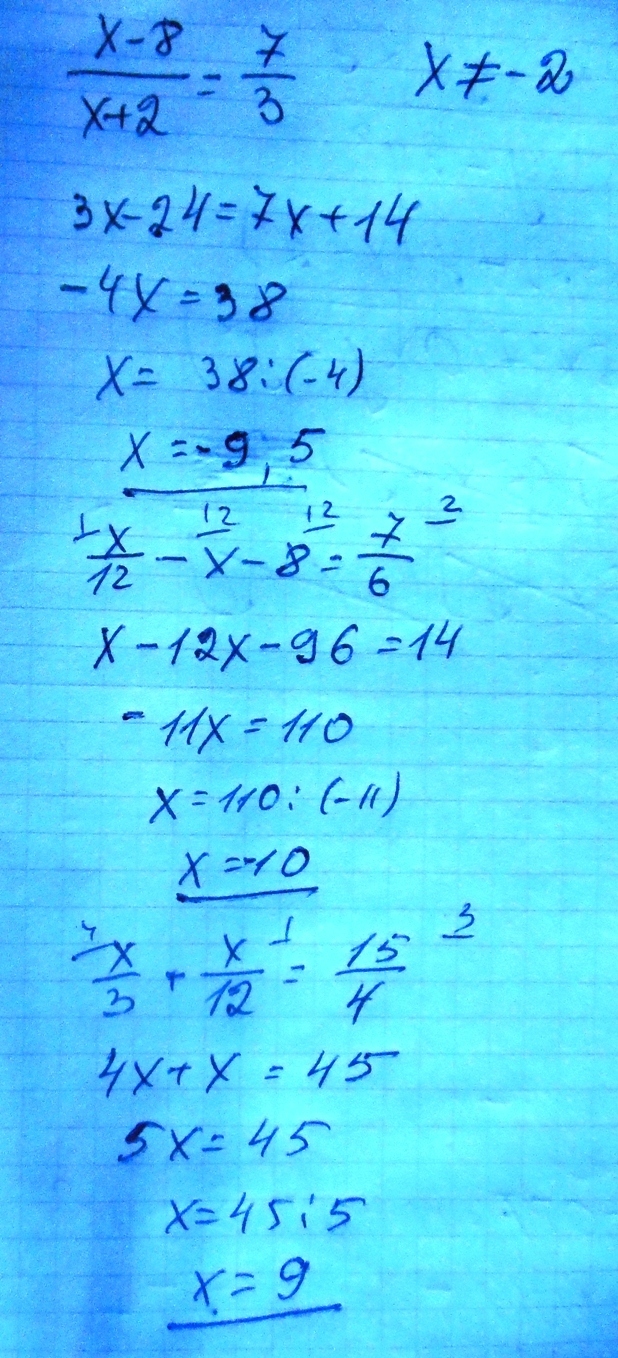 x-8/x+2 = 7/3 x≠-2
3x-24=7x+14
-4x=38
x= 38:(-4)
x=-9,5
1 x/12 - 12 x - 8 12 = 7/6 2
x-12x-96=14
-11x=110
x=110:(-11)
x=-10
4 x/3 + x/12 1 = 15/4 3
4x+x=45
5x=45
x=45:5
x=9